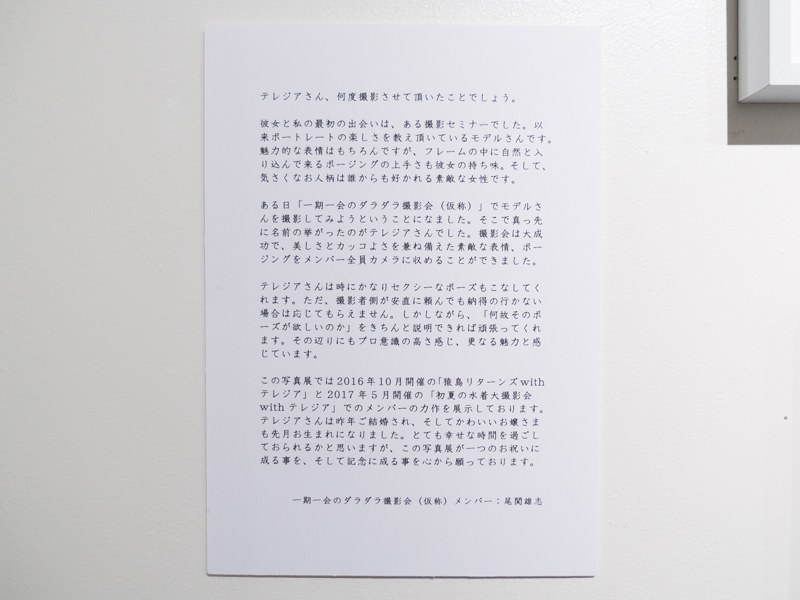 テレジアさん、何度撮影させて頂いたことでしょう。
彼女と私の最初の出会いは、ある撮影セミナーでした。以
来ポートレートの楽しさを教え頂いているモデルさんです。
魅力的な表情はもちろんですが、フレームの中に自然と入
り込んで来るポージングの上手さも彼女の持ち味。そして、
気さくなお人柄は誰からも好かれる素敵な女性です。
ある日「一期一会のダラダラ撮影会（仮称）」でモデルさ
んを撮影してみようということになました。そこで真っ先
に名前の挙がったのがテレジアさんでした。撮影会は大成
功で、美しさとカッコよさを兼ね備えた素敵な表情、ポー
ジングをメンバー全員カメラに収めることができました。
テレジアさんは時にかなりセクシーなポーズもこなしてく
れます。ただ、撮影者側が安直に頼んでも納得の行かない
場合は応じてもらえません。しかしながら、「何故そのポ
ーズが欲しいのか」をきちんと説明できれば頑張ってくれ
ます。その辺りにもプロ意識の高さ感じ、更なる魅力と感
じています。
この写真展では2016年10月開催の「猿島リターンズwith
テレジア」と2017年5月開催の「初夏の水着大撮影会
withテレジア」でのメンバーの力作を展示しております。
テレジアさんは昨年ご結婚され、そしてかわいいお嬢さま
も先月お生まれになりました。とても幸せな時間を過ごし
ておられるかと思いますが、この写真展が一つのお祝いに
成る事を、そして記念に成る事を心から願っております。
一期一会のダラダラ撮影会（仮称）メンバー：尾関雄志